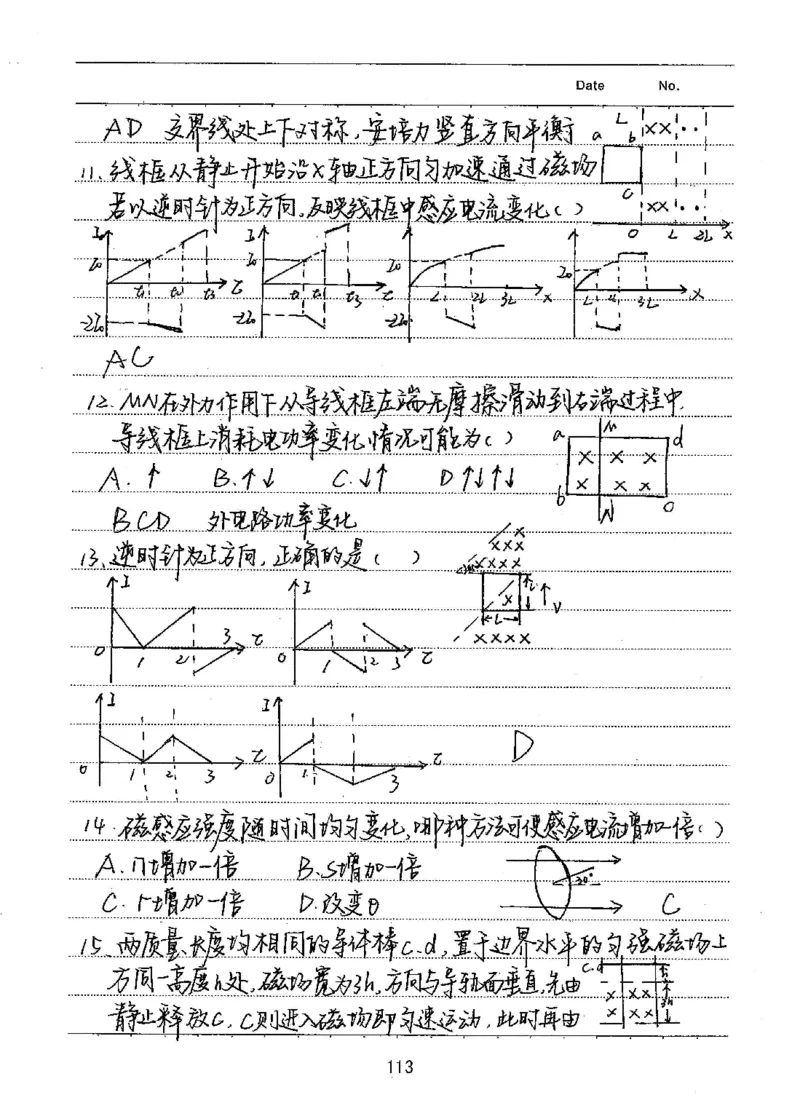 Date No.
AD 交界线处上下对称,安培力竖直方向平衡
a L b ×× ··
11.线框从静止开始沿X轴正方向匀加速通过磁场
c
若以逆时针为正方向,反映线框中感应电流变化( )
×× ··
0 L 2L X
I I
I₀ I₀ I₀ I₀
t₁ t₂ t₃ t t₁ t₂ t₃ t L 2L 3L X L 2L 3L X
-2I₀ -2I₀ -2I₀
AC
12. MN在外力作用下从导线框左端无摩擦滑动到右端过程中,
导线框上消耗电功率变化情况可能为( )
a M d
× × ×
A. ↑ B.↑↓ C.↓↑ D↑↓↑↓
× × ×
b N c
BCD 外电路功率变化
13、逆时针为正方向,正确的是( )
×
×××
××××
× L V
L
××××
I I
0 1 2 3 t 0 1 2 3 t
I I
0 1 2 3 t 0 1 3 t
D
14.磁感应强度随时间均匀变化,哪种方法可使感应电流增加一倍( )
A.n增加一倍 B.S增加一倍
30°
C.r增加一倍 D.改变θ C
15、两质量、长度均相同的导体棒c.d,置于边界水平的匀强磁场上
方同一高度h处,磁场宽为3h,方向与导轨面垂直,先由
c.d h
× ×× 3h
静止释放C,C刚进入磁场即匀速运动,此时再由
× ××
113